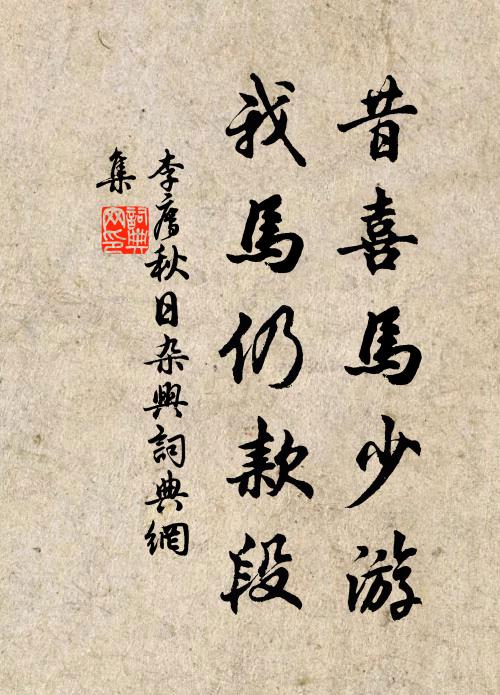 昔喜馬少游
我馬仍款段
李廌秋日杂興詞典網
集
詞典网印